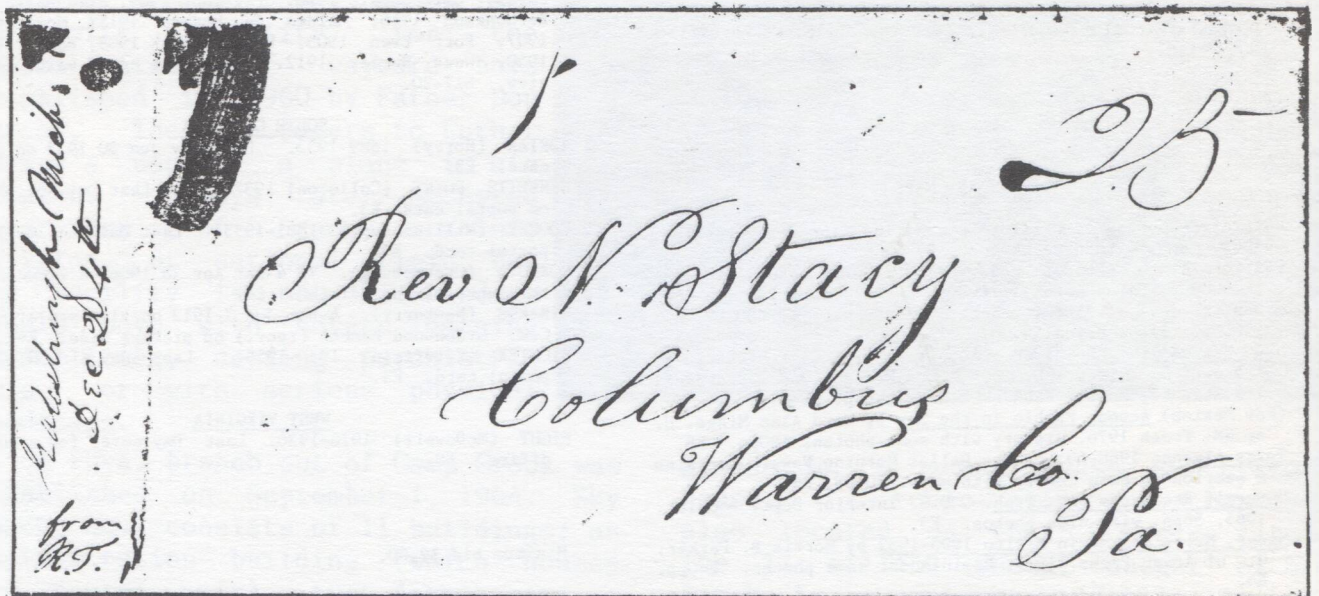 Galesburgh Mich.
Dec
from
R.T.
25
Rev N. Stacy
Columbus
Warren Co.
Pa.